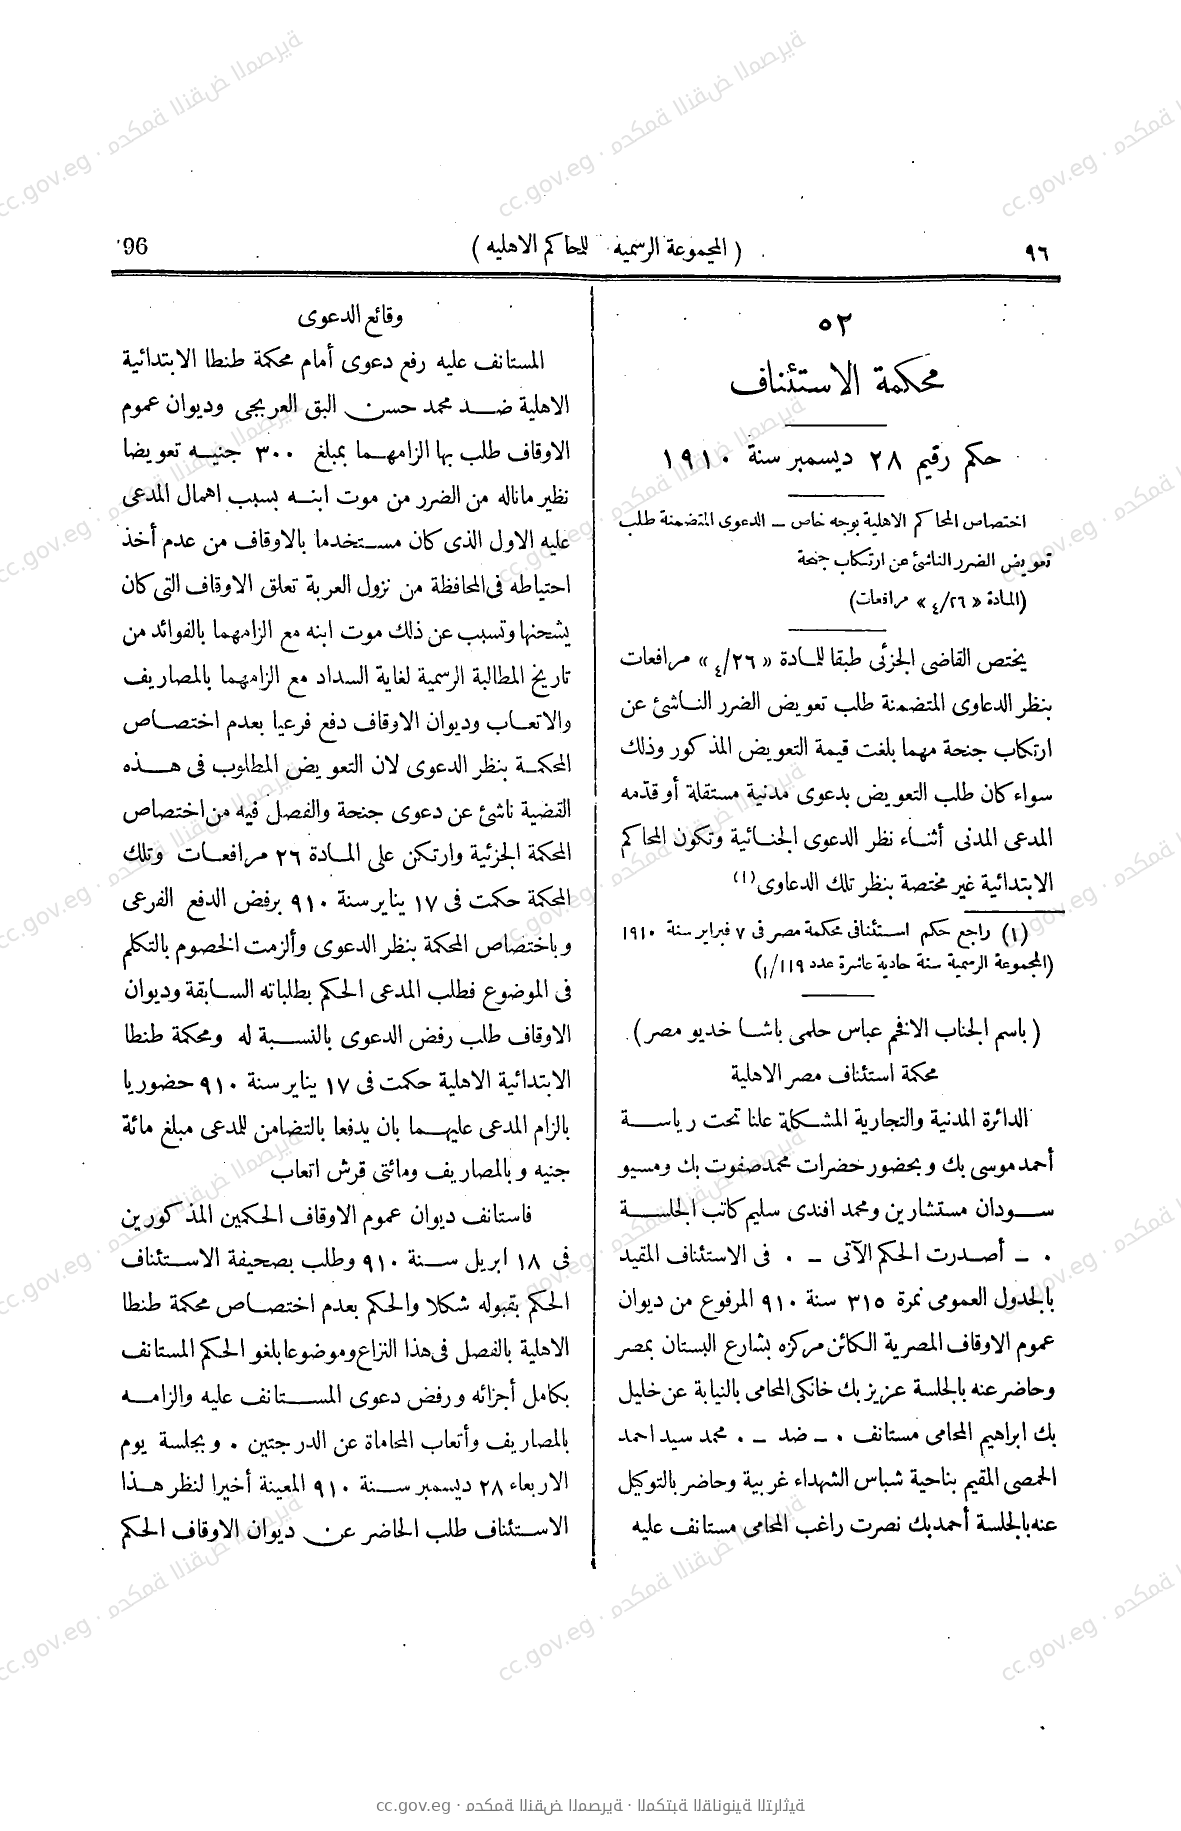 ٩٦
( المجموعة الرسمية للمحاكم الاهليه )
96
٥٢
محكمة الاستئناف
حكم رقيم ٢٨ ديسمبر سنة ١٩١٠
اختصاص المحاكم الاهلية بوجه خاص – الدعوى المتضمنة طلب
تعويض الضرر الناشئ عن ارتكاب جنحة
(المادة « ٤/٢٦ » مرافعات)
يختص القاضى الجزئى طبقا للمادة « ٤/٢٦ » مرافعات
بنظر الدعاوى المتضمنة طلب تعويض الضرر الناشئ عن
ارتكاب جنحة مهما بلغت قيمة التعويض المذكور وذلك
سواء كان طلب التعويض بدعوى مدنية مستقلة أو قدّمه
المدعى المدنى أثناء نظر الدعوى الجنائية وتكون المحاكم
الابتدائية غير مختصة بنظر تلك الدعاوى (١)
(١) راجع حكم استئنافى محكمة مصر فى ٧ فبراير سنة ١٩١٠
(المجموعة الرسمية سنة حادية عاشرة عدد ١/١١٩)
( باسم الجناب الافخم عباس حلمى باشا خديو مصر )
محكمة استئناف مصر الاهلية
الدائرة المدنية والتجارية المشكلة علنا تحت رياسة
أحمد موسى بك وبحضور حضرات محمد صفوت بك ومسيو
سودان مستشارين ومحمد افندى سليم كاتب الجلسة
٠ – أصدرت الحكم الآتى – ٠ فى الاستئناف المقيد
بالجدول العمومى نمرة ٣١٥ سنة ٩١٠ المرفوع من ديوان
عموم الاوقاف المصرية الكائن مركزه بشارع البستان بمصر
وحاضر عنه بالجلسة عزيز بك خانكى المحامى بالنيابة عن خليل
بك ابراهيم المحامى مستانف ٠ – ضد – ٠ محمد سيد احمد
الحمصى المقيم بناحية شباس الشهداء غربية وحاضر بالتوكيل
عنه بالجلسة أحمد بك نصرت راغب المحامى مستانف عليه
وقائع الدعوى
المستانف عليه رفع دعوى أمام محكمة طنطا الابتدائية
الاهلية ضد محمد حسن البق العربجى وديوان عموم
الاوقاف طلب بها الزامهما بمبلغ ٣٠٠ جنيه تعويضا
نظير ماناله من الضرر من موت ابنه بسبب اهمال المدعى
عليه الاول الذى كان مستخدما بالاوقاف من عدم أخذ
احتياطه فى المحافظة من نزول العربة تعلق الاوقاف التى كان
يشحنها وتسبب عن ذلك موت ابنه مع الزامهما بالفوائد من
تاريخ المطالبة الرسمية لغاية السداد مع الزامهما بالمصاريف
والاتعاب وديوان الاوقاف دفع فرعيا بعدم اختصاص
المحكمة بنظر الدعوى لان التعويض المطلوب فى هذه
القضية ناشئ عن دعوى جنحة والفصل فيه من اختصاص
المحكمة الجزئية وارتكن على المادة ٢٦ مرافعات وتلك
المحكمة حكمت فى ١٧ يناير سنة ٩١٠ برفض الدفع الفرعى
وباختصاص المحكمة بنظر الدعوى وألزمت الخصوم بالتكلم
فى الموضوع فطلب المدعى الحكم بطلباته السابقة وديوان
الاوقاف طلب رفض الدعوى بالنسبة له ومحكمة طنطا
الابتدائية الاهلية حكمت فى ١٧ يناير سنة ٩١٠ حضوريا
بالزام المدعى عليهما بان يدفعا بالتضامن للمدعى مبلغ مائة
جنيه وبالمصاريف ومائتى قرش اتعاب
فاستانف ديوان عموم الاوقاف الحكمين المذكورين
فى ١٨ ابريل سنة ٩١٠ وطلب بصحيفة الاستئناف
الحكم بقبوله شكلا والحكم بعدم اختصاص محكمة طنطا
الاهلية بالفصل فى هذا النزاع وموضوعا بلغو الحكم المستانف
بكامل أجزائه ورفض دعوى المستانف عليه والزامه
بالمصاريف وأتعاب المحاماة عن الدرجتين ٠ وبجلسة يوم
الاربعاء ٢٨ ديسمبر سنة ٩١٠ المعينة أخيرا لنظر هذا
الاستئناف طلب الحاضر عن ديوان الاوقاف الحكم
cc.gov.eg · محكمة النقض المصرية · المكتبة القانونية التراثية